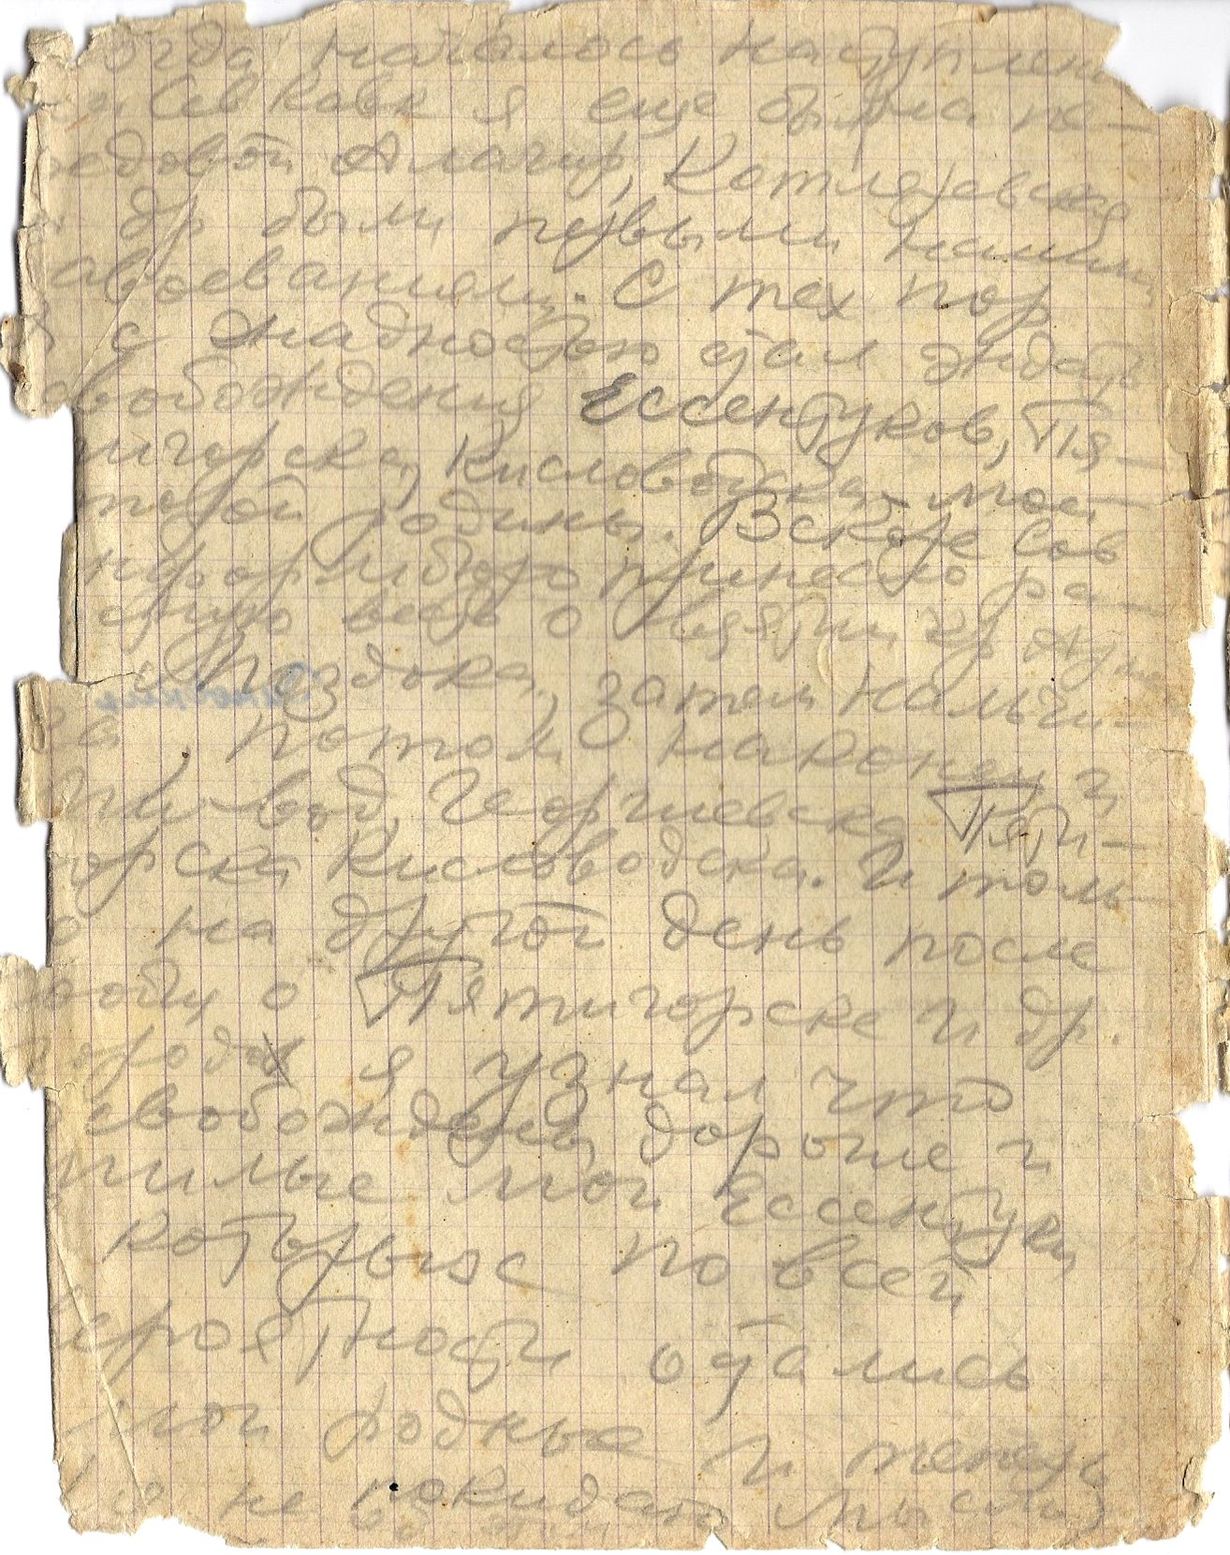 огда началось наступлен
Сев Кавк я еще был на пе-
редовой Алагир, Котляревская
и др были первыми нашими
авоеваниями. С тех пор
я с жадностью стал ждать
свобождения Ессентуков, Пя-
игорска, Кисловодска, моей
родины. Вскоре Сов
нформбюро принесло ра-
стную весть о взятии
Моздока, затем Нальчи-
ка, потом наконец и
Мин-вод, Георгиевска Пяти-
орска Кисловодска. И толь-
о на другой день после
о Пятигорске и др.
города я узнал что
свобождены дорогие и
милые мои Ессентуки
в которых по всей
ероятности остались
мои родные и теперь
меня не покидает мысль